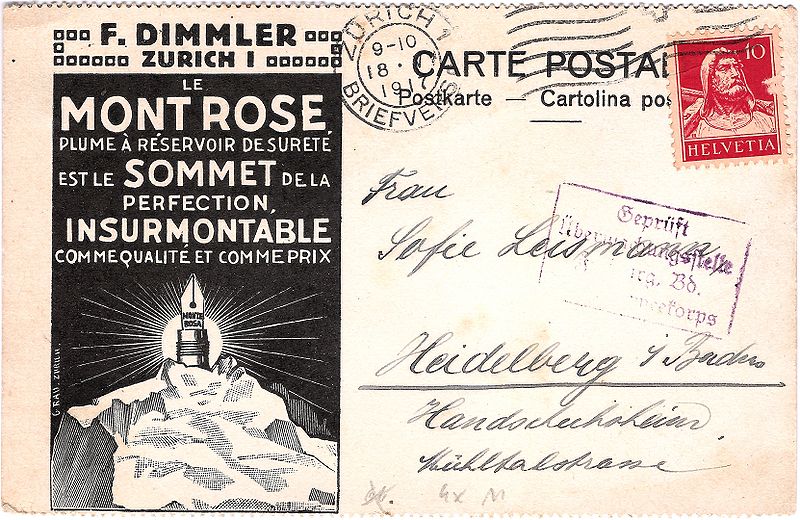 F. DIMMLER
ZURICH I
LE
MONT ROSE,
PLUME À RÉSERVOIR DE SURETÉ
EST LE SOMMET DE LA
PERFECTION,
INSURMONTABLE
COMME QUALITÉ ET COMME PRIX
MONTE
ROSA
G. RAU. ZÜRICH.
ZÜRICH 1
9-10
18.
1917
BRIEFVERS
CARTE POSTAL
Postkarte — Cartolina pos
10
HELVETIA
Frau
Sofie Leismann
Geprüft
Überwachungsstelle
Bd.
meekorps
Heidelberg i/Baden
Handschuhsheim
Mühltalstrasse